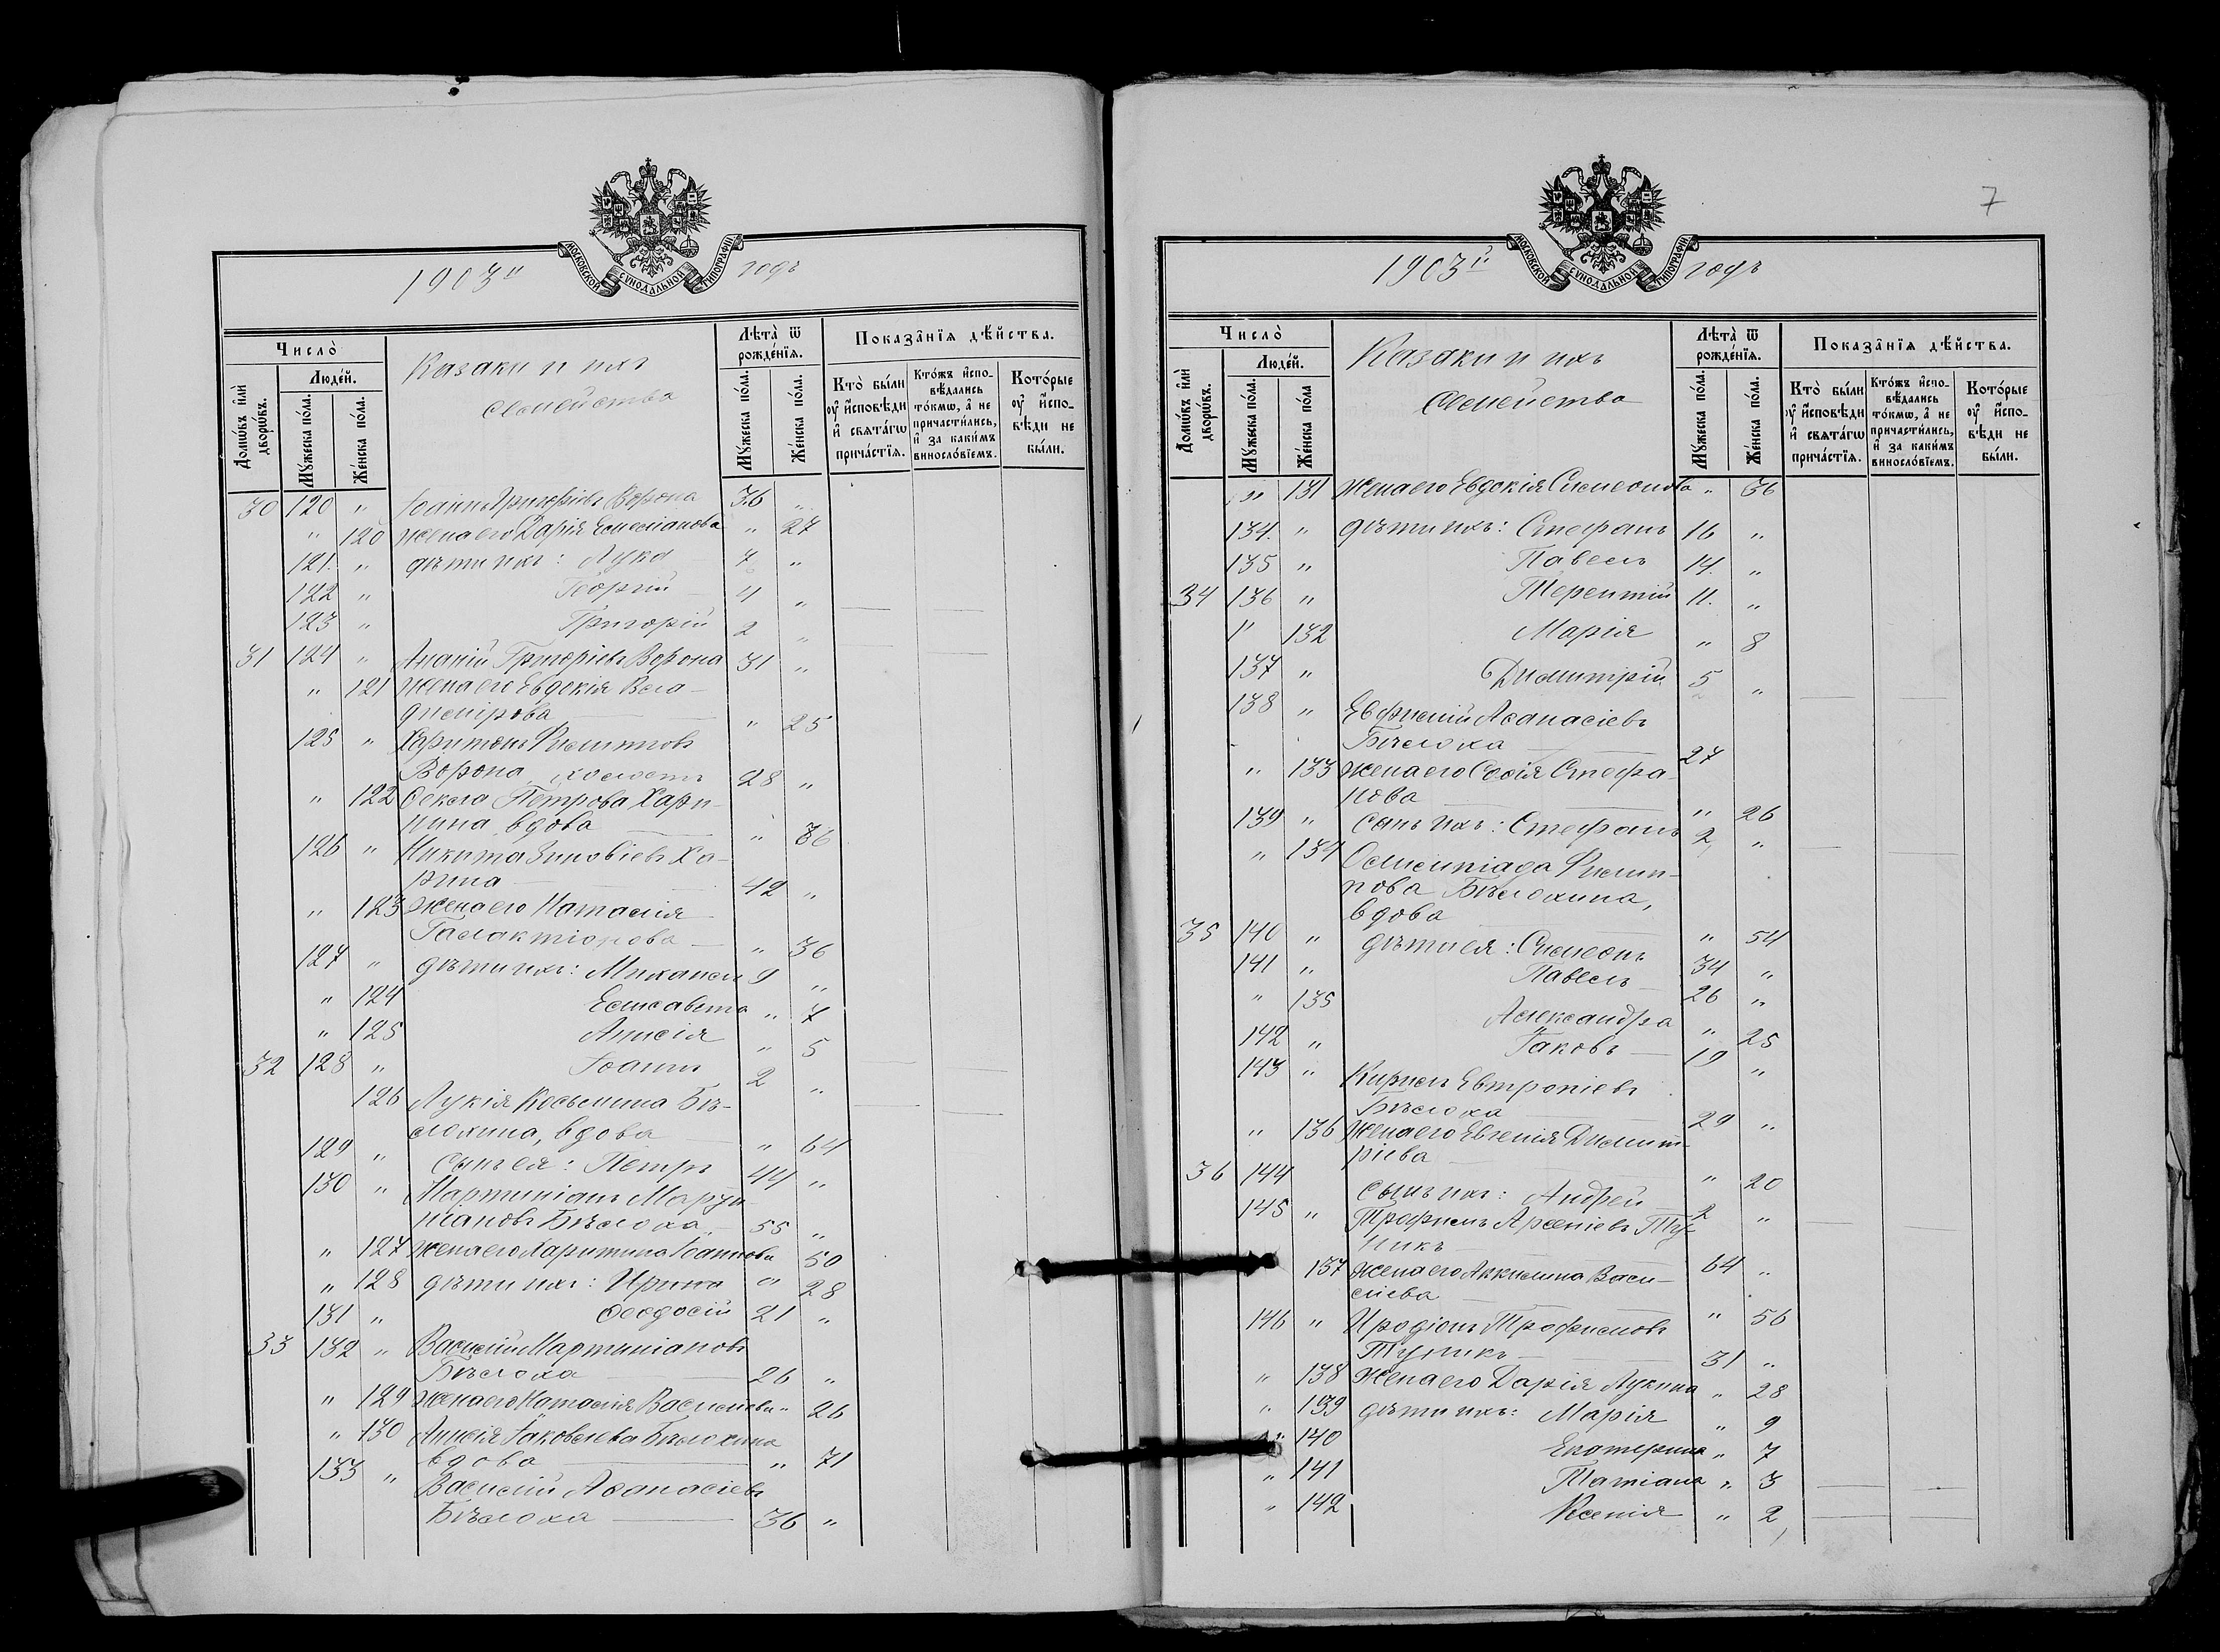 МОСКОВСКОЙ СѴНОДАЛЬНОЙ ТИПОГРАФІИ
1903й годъ
Число̀
Домѡ́въ и҆лѝ дворѡ́въ.
Люде́й.
Мꙋ́жеска по́ла.
Же́нска по́ла.
Казаки и ихъ
семейства
Лѣта̀ ѿ рожде́нїѧ.
Мꙋ́жеска по́ла.
Же́нска по́ла.
Показа̂нїѧ дѣ́йства.
Кто̀ бы́ли оу҆ и҆сповѣди и҆ свѧта́гѡ прича́стїѧ.
Кто́жъ и҆спо-вѣ́дались то́кмѡ, а҆ не причасти́лись, и҆ за каки́мъ винословїемъ.
Кото́рые оу҆ и҆спо-вѣди не бы́ли.
30 120 " Іоаннъ Григоріевъ Ворона 36 "
" 120 Жена его Дарія Емеліанова " 27
121. " дѣти ихъ: Лука 7 "
122 " Георгій 4 "
123 " Григорій 2 "
31 124 " Ананій Григоріевъ Ворона 31 "
" 121 Жена его Евдокія Вла-
димірова " 25
125 " Харитонъ Филипповъ
Ворона, холостъ 28 "
" 122 Ѳекла Петрова Хари-
нина, вдова " 86
126 " Никита Зиновіевъ Ха-
рина 42 "
" 123 Жена его Наталія
Галактіонова " 36
127 " дѣти ихъ: Михаилъ 9 "
" 124 Елисавета " 7
" 125 Анисія " 5
32 128 " Іоаннъ 2 "
126 Лукія Косьмина Бѣ-
лохина, вдова " 64
129 " Сынъ ея: Петръ 44 "
130 " Мартиніанъ Марти-
ніановъ Бѣлоха 55 "
" 127 Жена его Харитина Іоаннова 50
" 128 дѣти ихъ: Ирина " 28
131 " Ѳеодосій 21 "
33 132 " Василій Мартиніановъ
Бѣлоха 26 "
" 129 Жена его Наталія Василіева " 26
" 130 Анисія Іаковлева Бѣлохина
вдова " 71
133 " Василій Аѳанасіевъ
Бѣлоха 36 "
7
МОСКОВСКОЙ СѴНОДАЛЬНОЙ ТИПОГРАФІИ
1903й годъ
Число̀
Домѡ́въ и҆лѝ дворѡ́въ.
Люде́й.
Мꙋ́жеска по́ла.
Же́нска по́ла
Казаки и ихъ
семейства
Лѣта̀ ѿ рожде́нїѧ.
Мꙋ́жеска по́ла.
Же́нска по́ла.
Показа̂нїѧ дѣ́йства.
Кто̀ бы́ли оу҆ и҆сповѣди и҆ свѧта́гѡ прича́стїѧ.
Кто́жъ и҆спо-вѣ́дались то́кмѡ, а҆ не причасти́лись, и҆ за каки́мъ винословїемъ.
Кото́рые оу҆ и҆спо-вѣди не бы́ли.
" 131 Жена его Евдокія Симеонова " 36
134. " дѣти ихъ: Стефанъ 16 "
135 " Павелъ 14. "
34 136 " Терентій 11. "
" 132 Марія " 8
137 " Димитрій 5 "
138 " Евфимій Аѳанасіевъ
Бѣлоха 27
" 133 Жена его Софія Стефа-
нова " 26
139 " Сынъ ихъ: Стефанъ 2 "
" 134 Олимпіада Филип-
пова Бѣлохина,
вдова " 54
35 140 " дѣти ея: Симеонъ 34 "
141 " Павелъ 26 "
" 135 Александра " 25
142 " Іаковъ 19 "
143 " Кирилъ Евтропіевъ
Бѣлоха 29 "
" 136 Жена его Евгенія Димит-
ріева " 20
36 144 Сынъ ихъ: Андрей 2 "
145 " Трофимъ Арсеніевъ Ту-
пикъ 64 "
137 Жена его Акилина Васи-
ліева " 56
146 " Иродіонъ Трофимовъ
Тупикъ 31 "
" 138 Жена его Дарія Лукина " 28
" 139 дѣти ихъ: Марія " 9
" 140 Екатерина " 7
" 141 Татіана " 3
" 142 Ксенія " 2